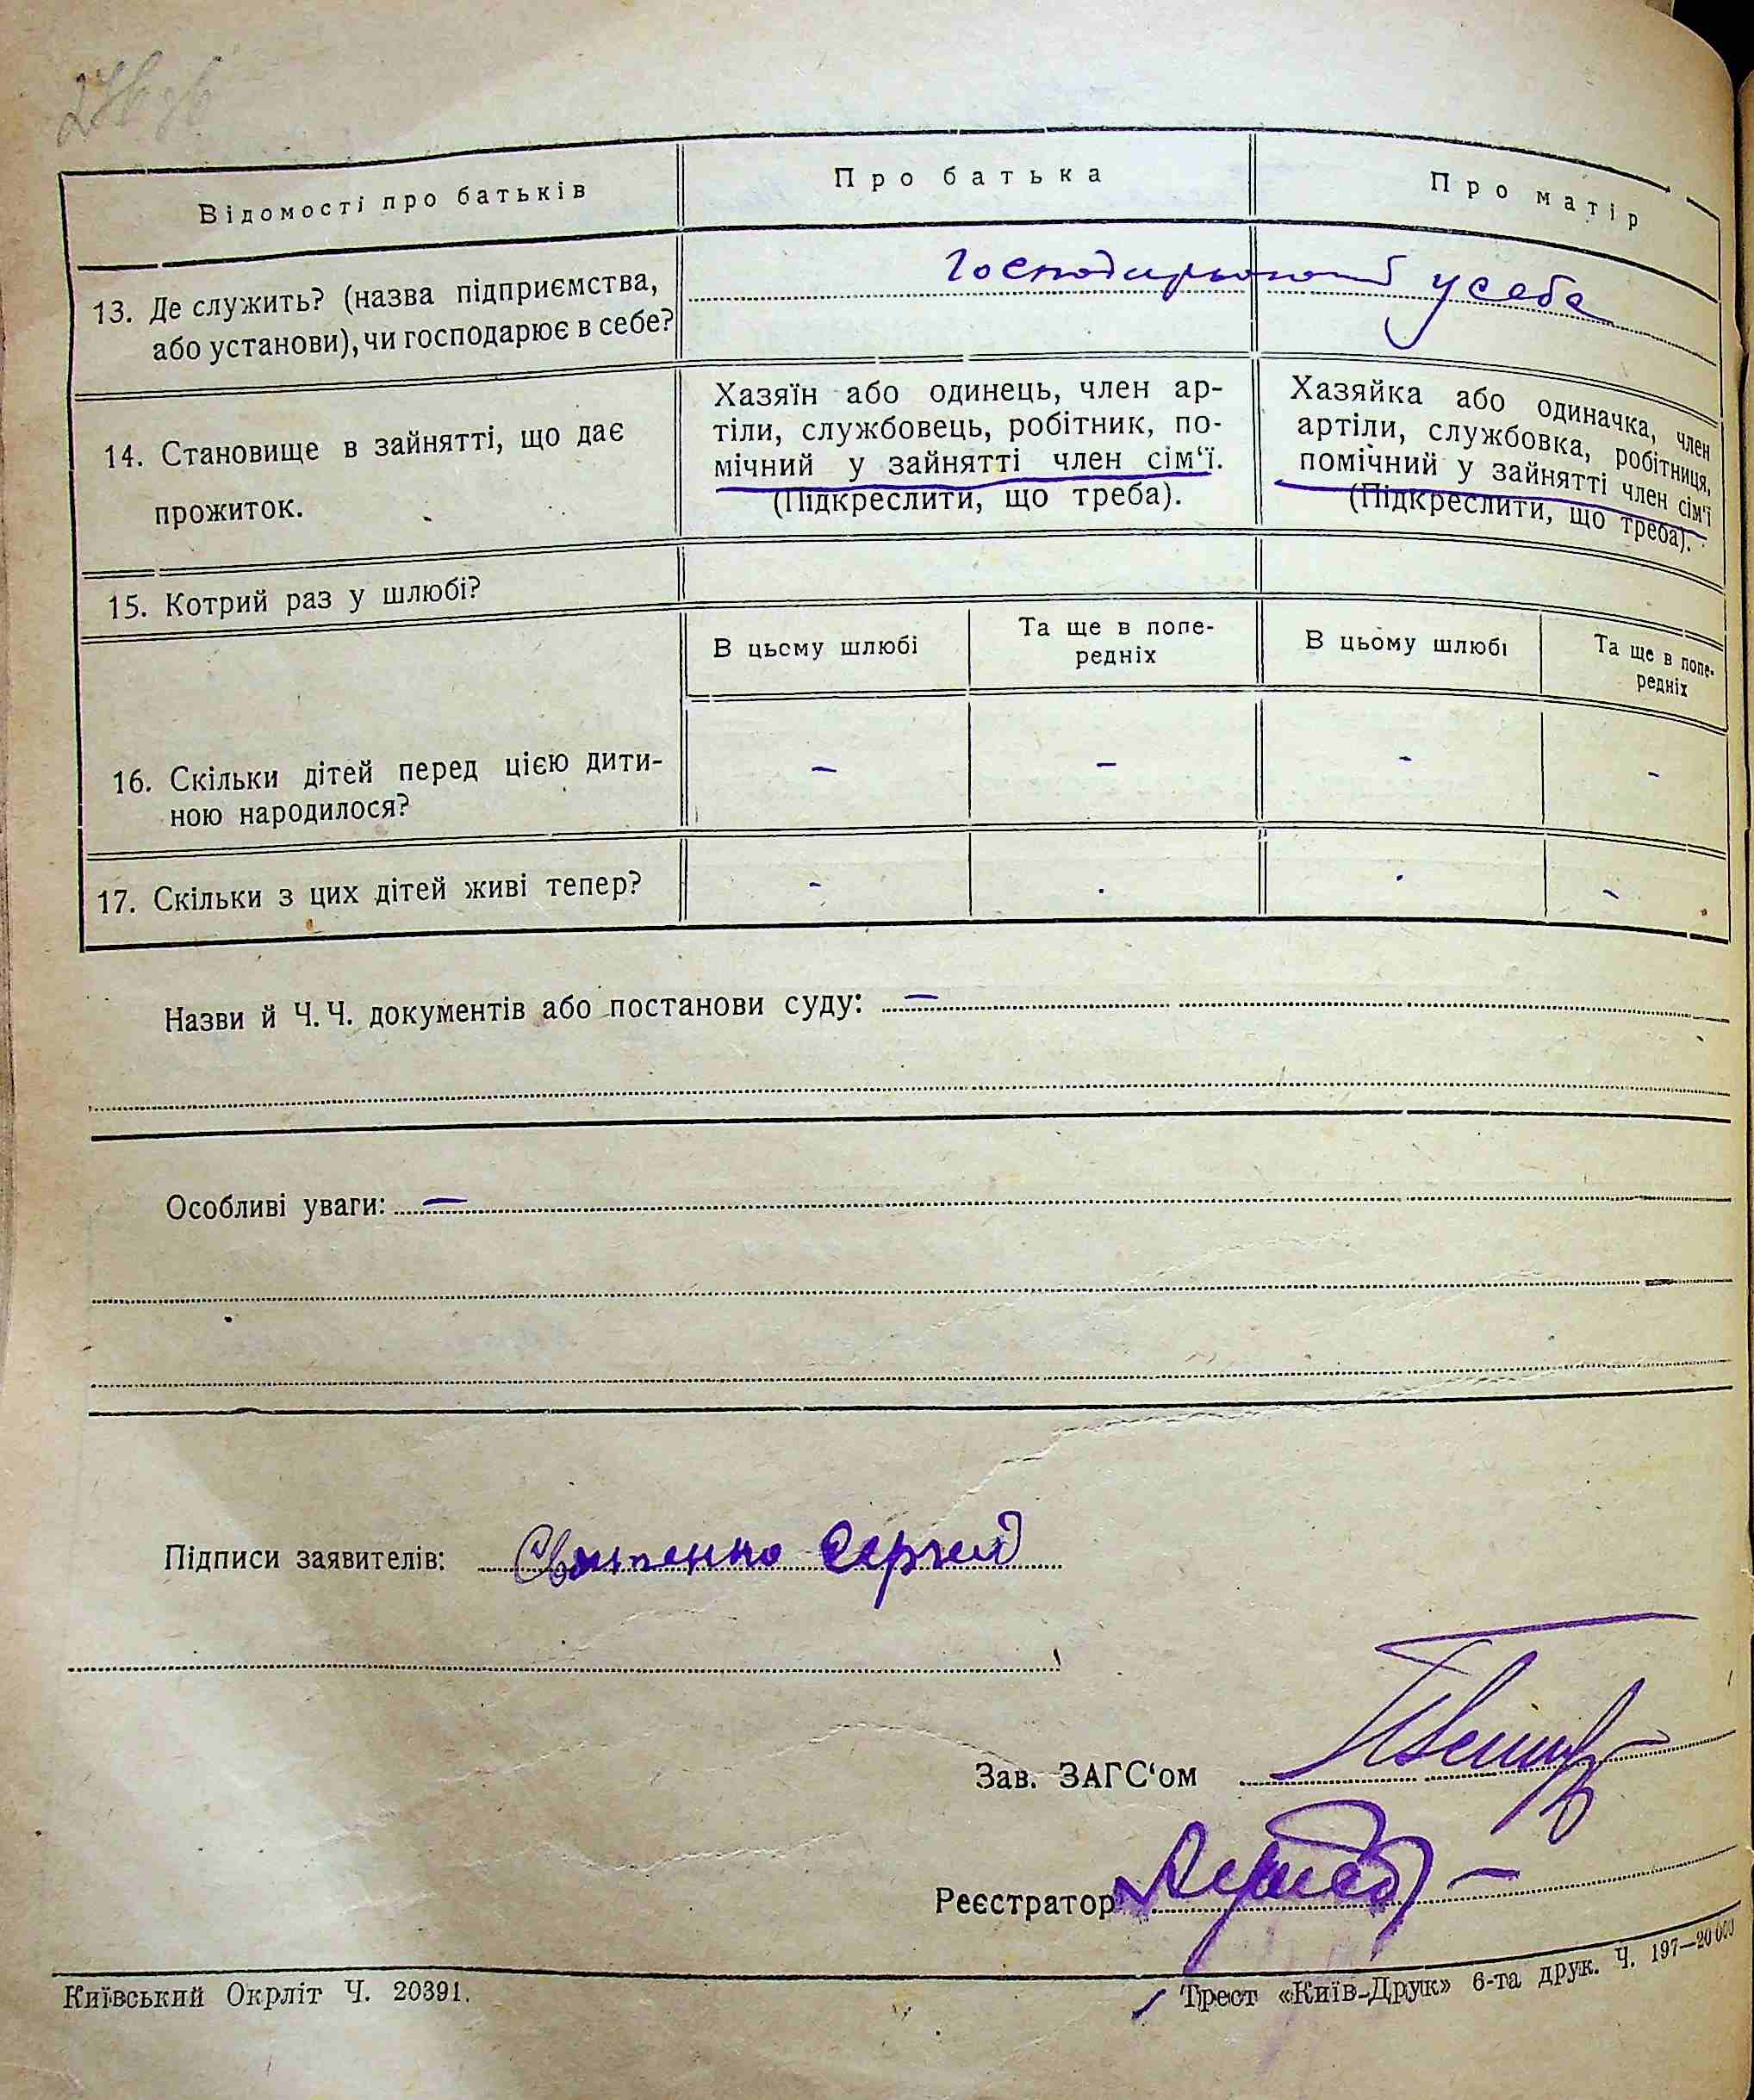 Відомості про батьків
Про батька
Про матір
13. Де служить? (назва підприємства,
або установи), чи господарює в себе?
у себе
14. Становище в зайнятті, що дає
прожиток.
Хазяїн або одинець, член ар-
тіли, службовець, робітник, по-
мічний у зайнятті член сім‘ї.
(Підкреслити, що треба).
Хазяйка або одиначка, член
артіли, службовка, робітниця,
помічний у зайнятті член сім‘ї
(Підкреслити, що треба).
15. Котрий раз у шлюбі?
В цьому шлюбі
Та ще в попе-
редніх
В цьому шлюбі
Та ще в попе-
редніх
16. Скільки дітей перед цією дити-
ною народилося?
– – - -
17. Скільки з цих дітей живі тепер?
- . . -
Назви й Ч. Ч. документів або постанови суду: —
Особливі уваги: —
Підписи заявителів: Сергей
Зав. ЗАГС‘ом
Реєстратор
Київський Окрліт Ч. 20391.
Трест «Київ-Друк» 6-та друк. Ч. 197—20000